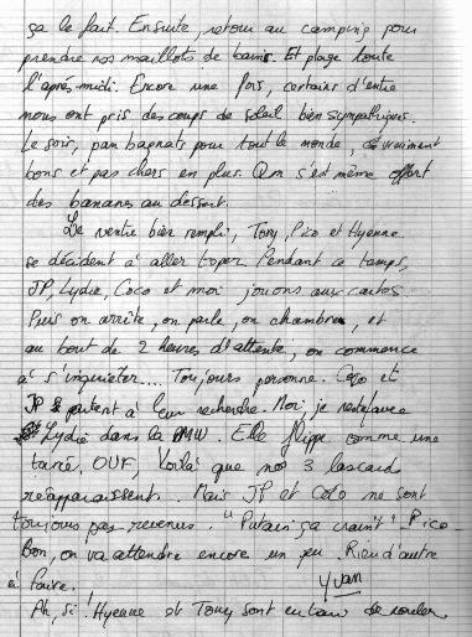 ça le fait. Ensuite, retour au camping pour
prendre nos maillots de bains. Et plage toute
l'après-midi. Encore une fois, certains d'entre
nous ont pris des coups de soleil bien sympathiques.
Le soir, pan bagnats pour tout le monde, vraiment
bons et pas chers en plus. On s'est même offert
des bananes au dessert.
Le ventre bien rempli, Tony, Pico et Hyenne
se décident à aller toper. Pendant ce temps,
JP, Lydie, Coco et moi jouons aux cartes.
Puis on arrête, on parle, on chambre, et
au bout de 2 heures d'attente, on commence
à s'inquiéter.... Toujours personne. Coco et
JP partent à leur recherche. Moi, je
Lydie dans la BMW. Elle flippe comme une
tarée. OUF, Voilà que nos 3 lascards
réapparaissent. Mais JP et Coco ne sont
toujours pas revenus. "Putain ça craint" Pico
Bon, on va attendre encore un peu. Rien d'autre
à faire.
Yvan
Ah, si ! Hyenne et Tony sont en train de rouler.